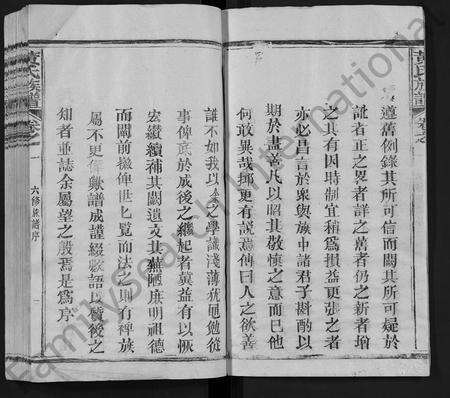 黃氏族譜 卷之
遵舊例錄其所可信而闕其所可疑於
訛者正之畧者詳之舊者仍之新者增
之其有因時制宜稍為損益更張之者
亦必昌言於眾與族中諸君子斟酌以
期於盡善凡以昭其敬慎之意而已他
何敢異哉抑更有說焉傳曰人之欲善
誰不如我以余之學識淺薄猶黽勉從
事俾克於成後之繼起者冀益有以恢
宏纘續補其闕遺文其蕪陋庶明祖德
而闡前徽俾世匕覽而法之則有裨族
屬不更偉歟譜成謹綴數語以質後之
知者並誌余屬望之殷焉是為序
黃氏族譜 卷
一
六修族譜序
FamilySearch International